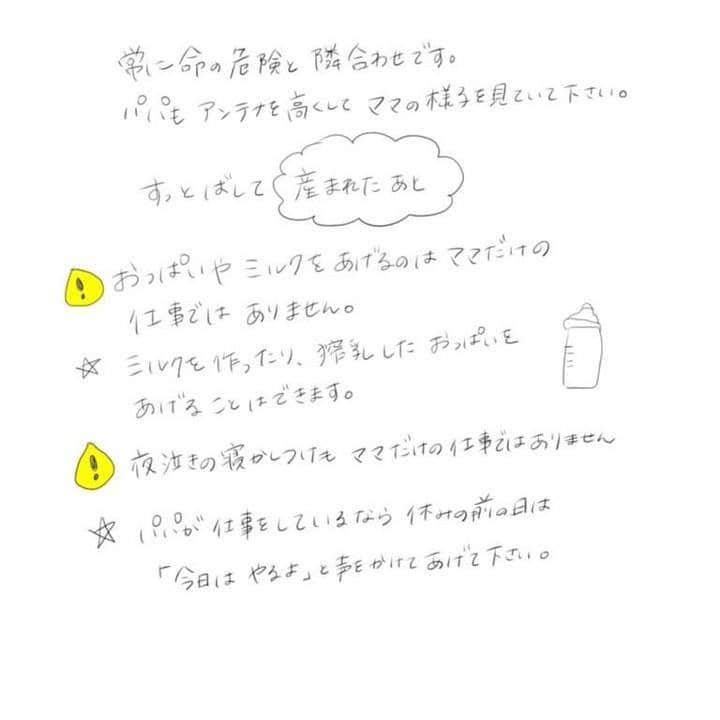 常に命の危険と隣合わせです。
パパもアンテナを高くしてママの様子を見ていて下さい。
すっとばして 産まれたあと
! おっぱいやミルクをあげるのはママだけの
仕事ではありません。
☆ ミルクを作ったり、搾乳したおっぱいを
あげることはできます。
! 夜泣きの寝かしつけもママだけの仕事ではありません
☆ パパが仕事をしているなら休みの前の日は
「今日はやるよ」と声をかけてあげて下さい。